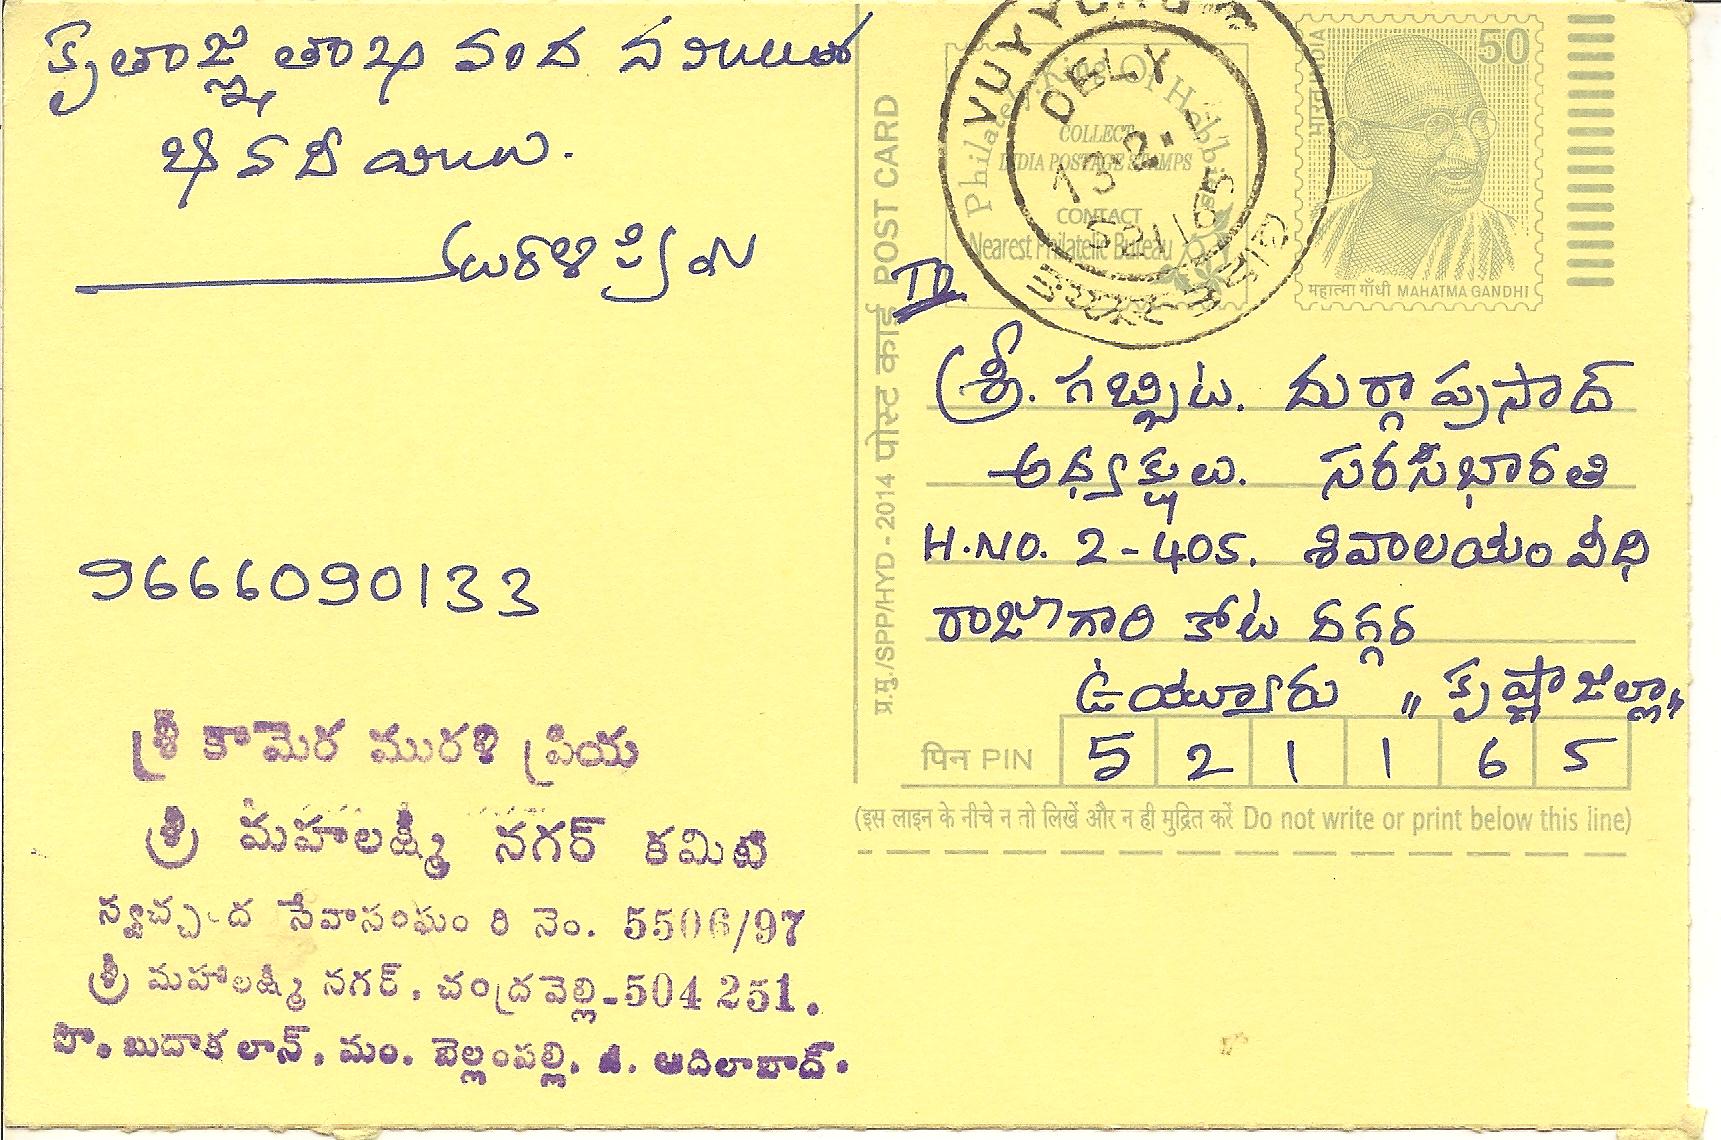 కృతాజ్ఞతాభి వందనములతో
భవదీయులు.
మురళి ప్రియ
9666090133
శ్రీ కామెర మురళి ప్రియ
శ్రీ మహాలక్ష్మి నగర్ కమిటి
స్వచ్చంద సేవాసంఘం రి నెం. 5506/97
శ్రీ మహాలక్ష్మి నగర్, చంద్రవెల్లి-504 251.
పొ. బుదాకలాన్, మం. బెల్లంపల్లి, జి. ఆదిలాబాద్.
प्र.मु./SPP/HYD - 2014 पोस्ट कार्ड POST CARD
Philately King Of Hobbies
COLLECT
INDIA POSTAGE STAMPS
CONTACT
Nearest Philatelic Bureau
VUYYURU
DELY
13-2-
521165
भारत INDIA
50
महात्मा गाँधी MAHATMA GANDHI
శ్రీ. గబ్బిట. దుర్గాప్రసాద్
అధ్యక్షులు. సరసభారతి
H.NO. 2-405. శివాలయం వీధి
రాజుగారి కోట దగ్గర
ఉయ్యూరు " కృష్ణాజిల్లా"
पिन PIN 5 2 1 1 6 5
(इस लाइन के नीचे न तो लिखें और न ही मुद्रित करें Do not write or print below this line)